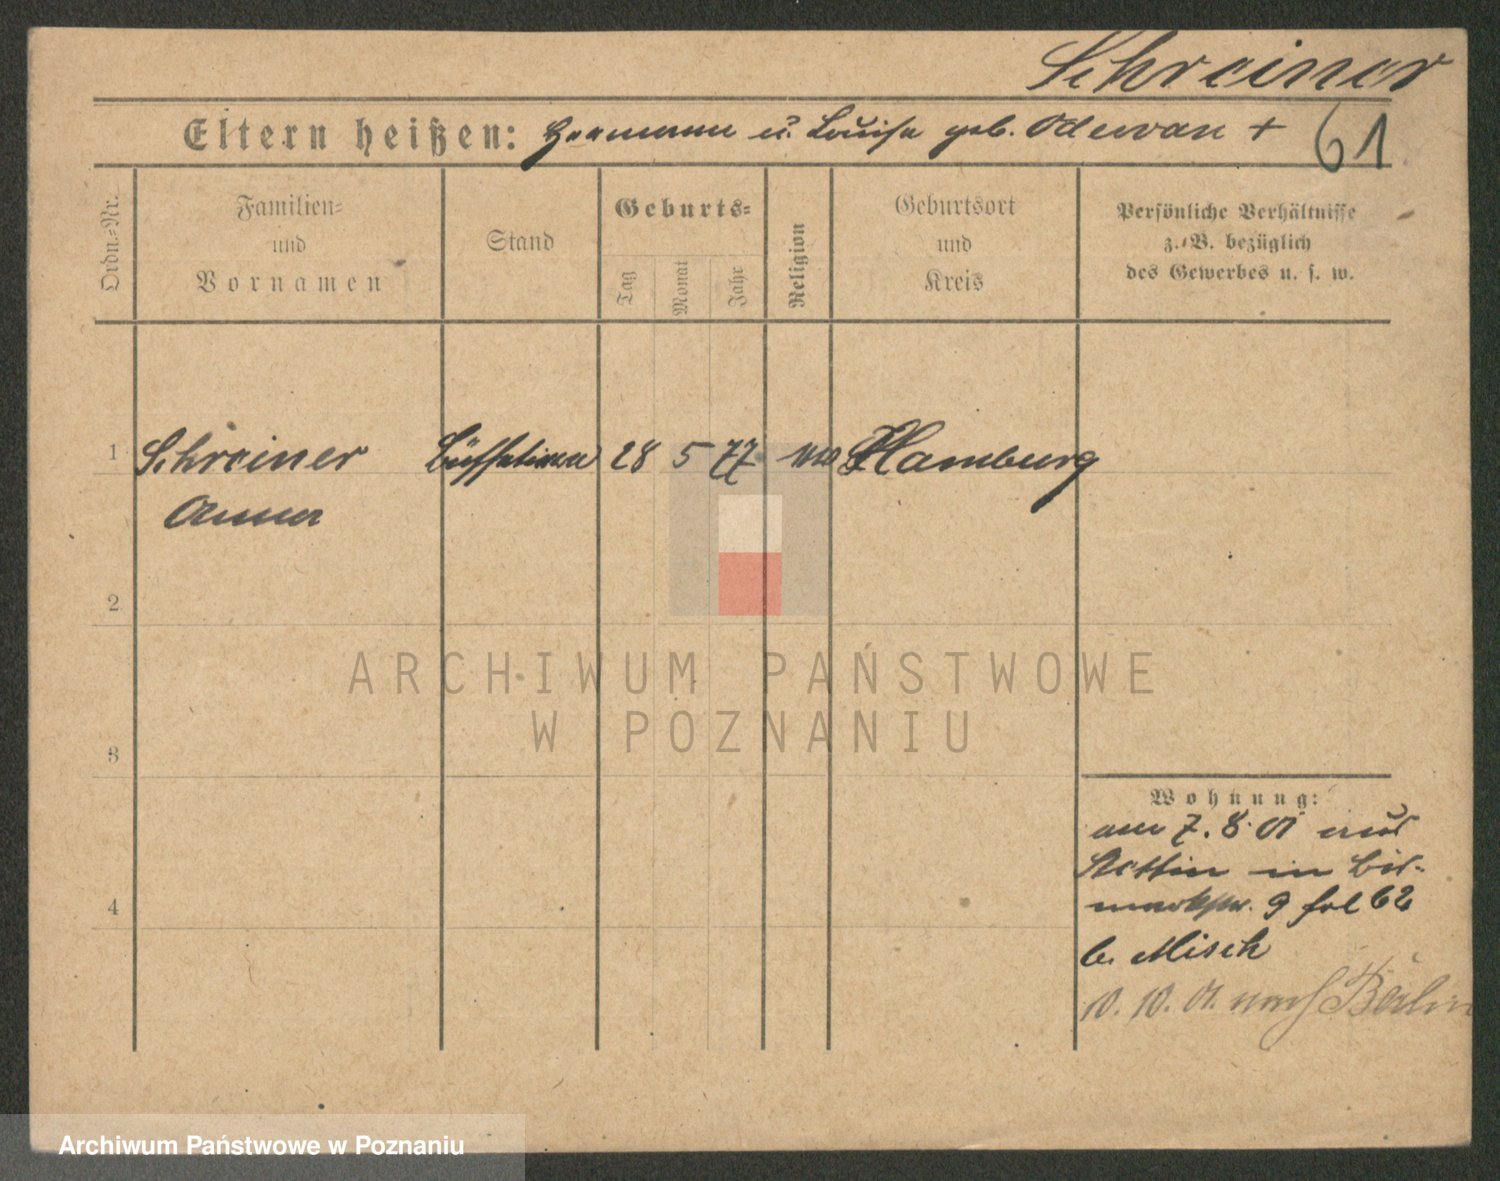 Schreiner
Eltern heißen: Hermann u. Louise geb. Odewan +
61
Ordn.=Nr.
Familien=
und
Vornamen
Stand
Geburts=
Tag
Monat
Jahr
Religion
Geburtsort
und
Kreis
Persönliche Verhältnisse
z. B. bezüglich
des Gewerbes u. s. w.
1 Schreiner 28 5 77 Hamburg
Anna
2
3
4
Wohnung:
am 7. 8. 01 aus
Stettin in Bis-
9 fol 62
b. Misch
10. 10. 01. nach Berlin
ARCHIWUM PAŃSTWOWE
W POZNANIU
Archiwum Państwowe w Poznaniu